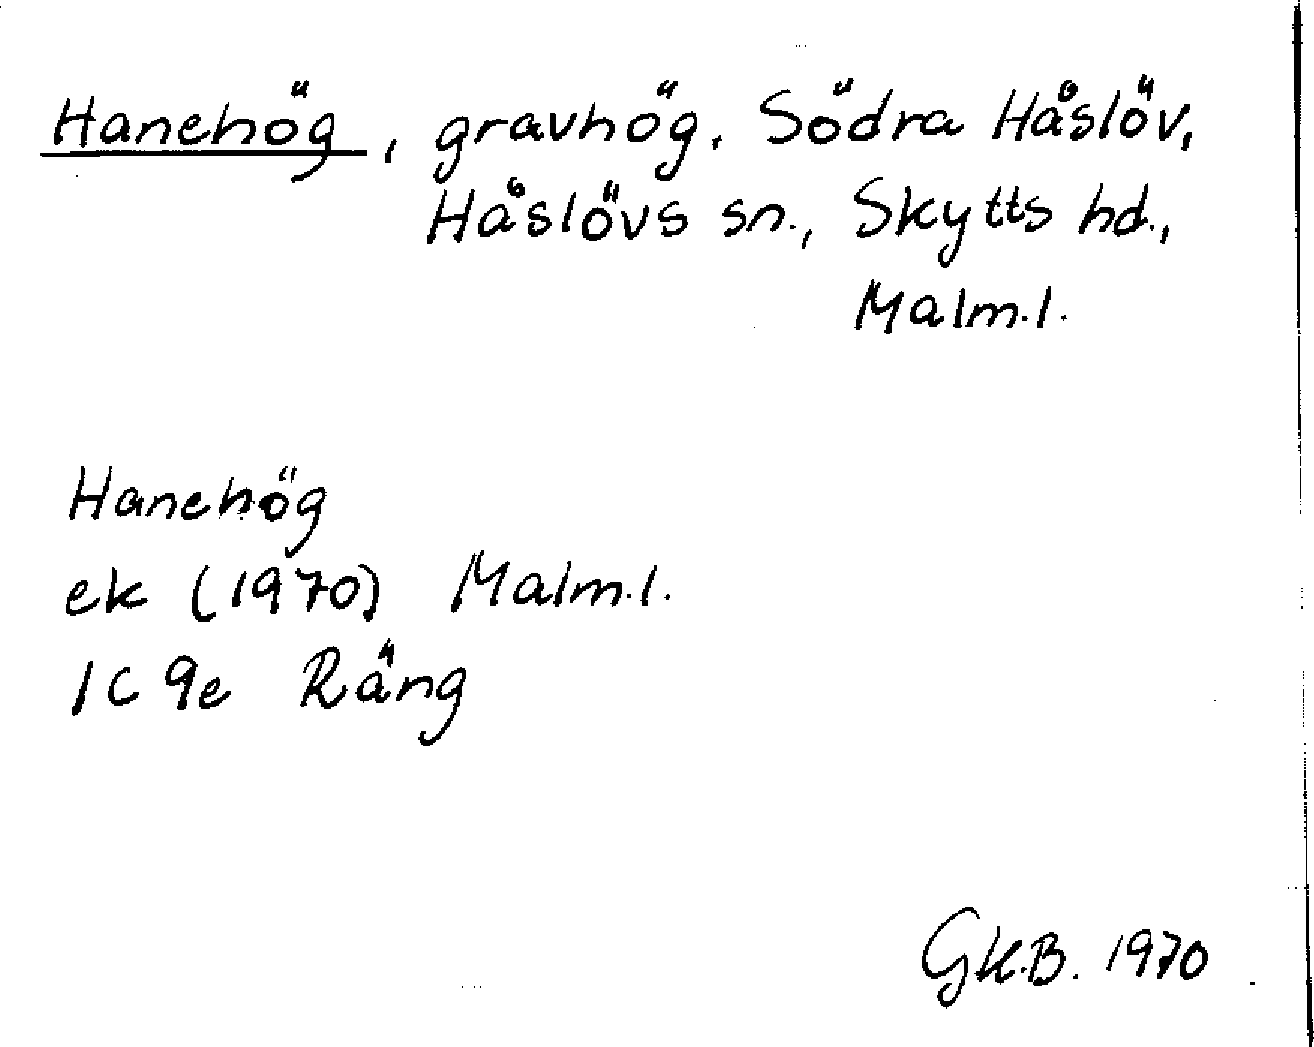 Hanehög, gravhög, Södra Håslöv,
Håslövs sn., Skytts hd.,
Malm.l.
Hanehög
ek (1970) Malm.l.
1C 9e Räng
GK.B. 1970